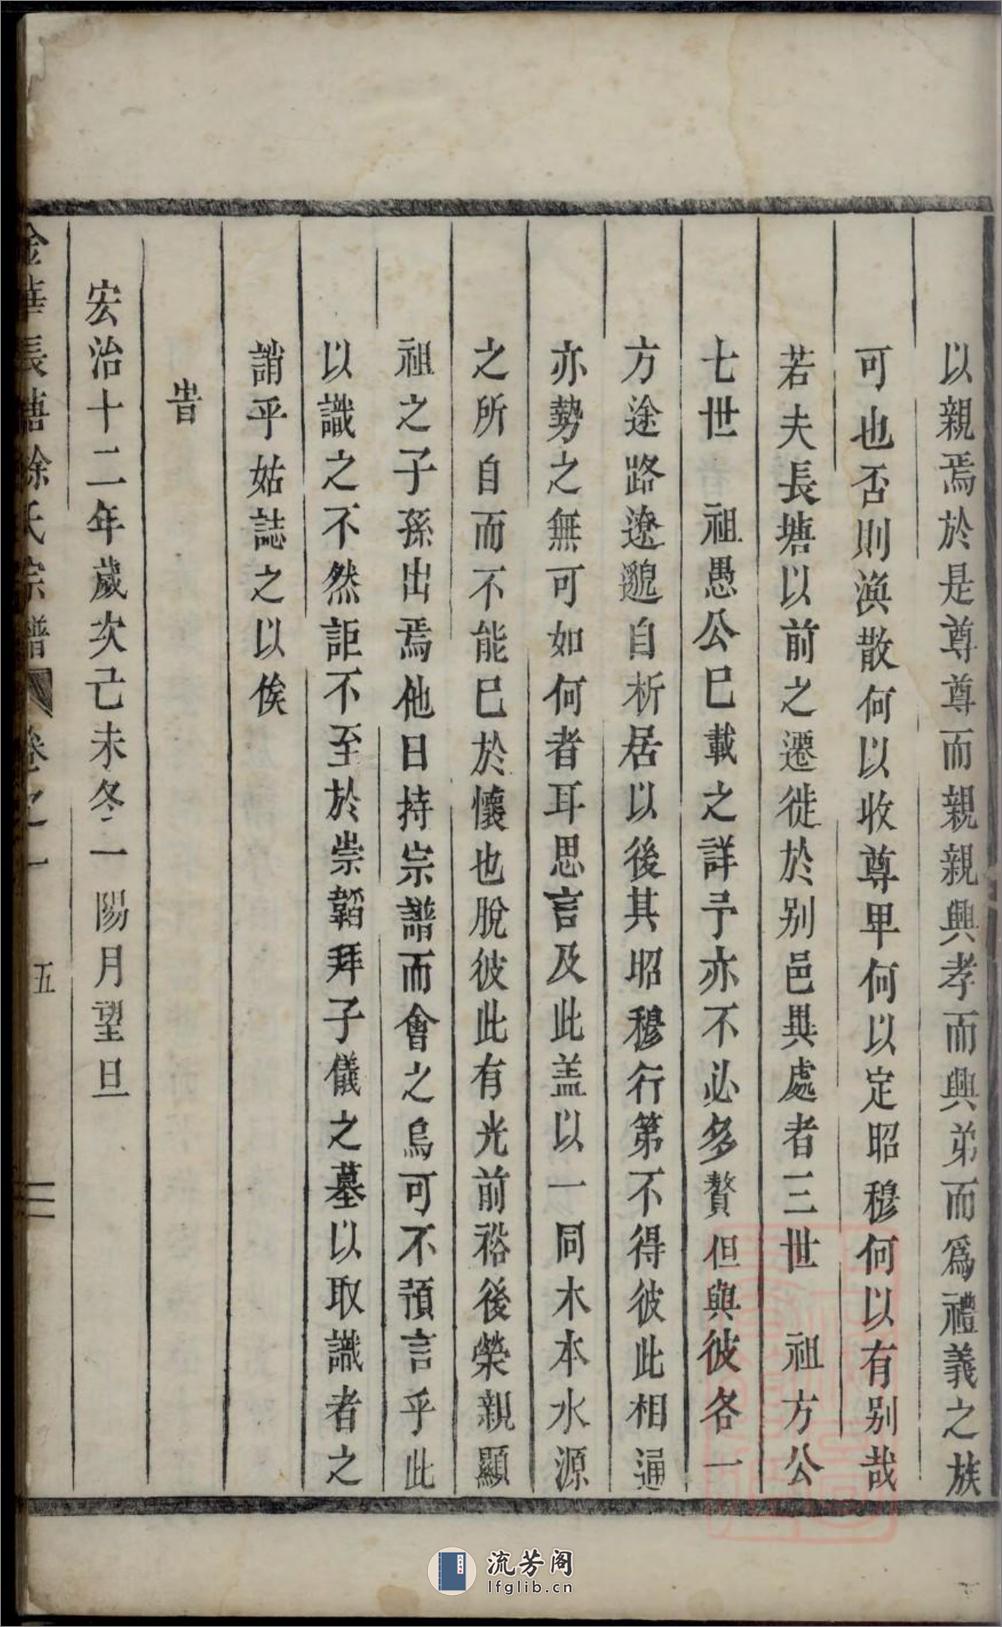 以親焉於是尊尊而親親興孝而興弟而爲禮義之族
可也否則渙散何以收尊卑何以定昭穆何以有别哉
若夫長塘以前之遷徙於别邑異處者三世　祖方公
七世　祖愚公巳載之詳予亦不必多贅但與彼各一
方途路遼邈自析居以後其昭穆行第不得彼此相通
亦勢之無可如何者耳思言及此盖以一同木本水源
之所自而不能巳於懷也脫彼此有光前裕後榮親顯
祖之子孫出焉他日持宗譜而會之烏可不預言乎此
以識之不然詎不至於崇韜拜子儀之墓以取識者之
誚乎姑誌之以俟
旹
宏治十二年歲次己未冬一陽月望旦
金華長塘徐氏宗譜　卷之一　五
流芳阁
lfglib.cn